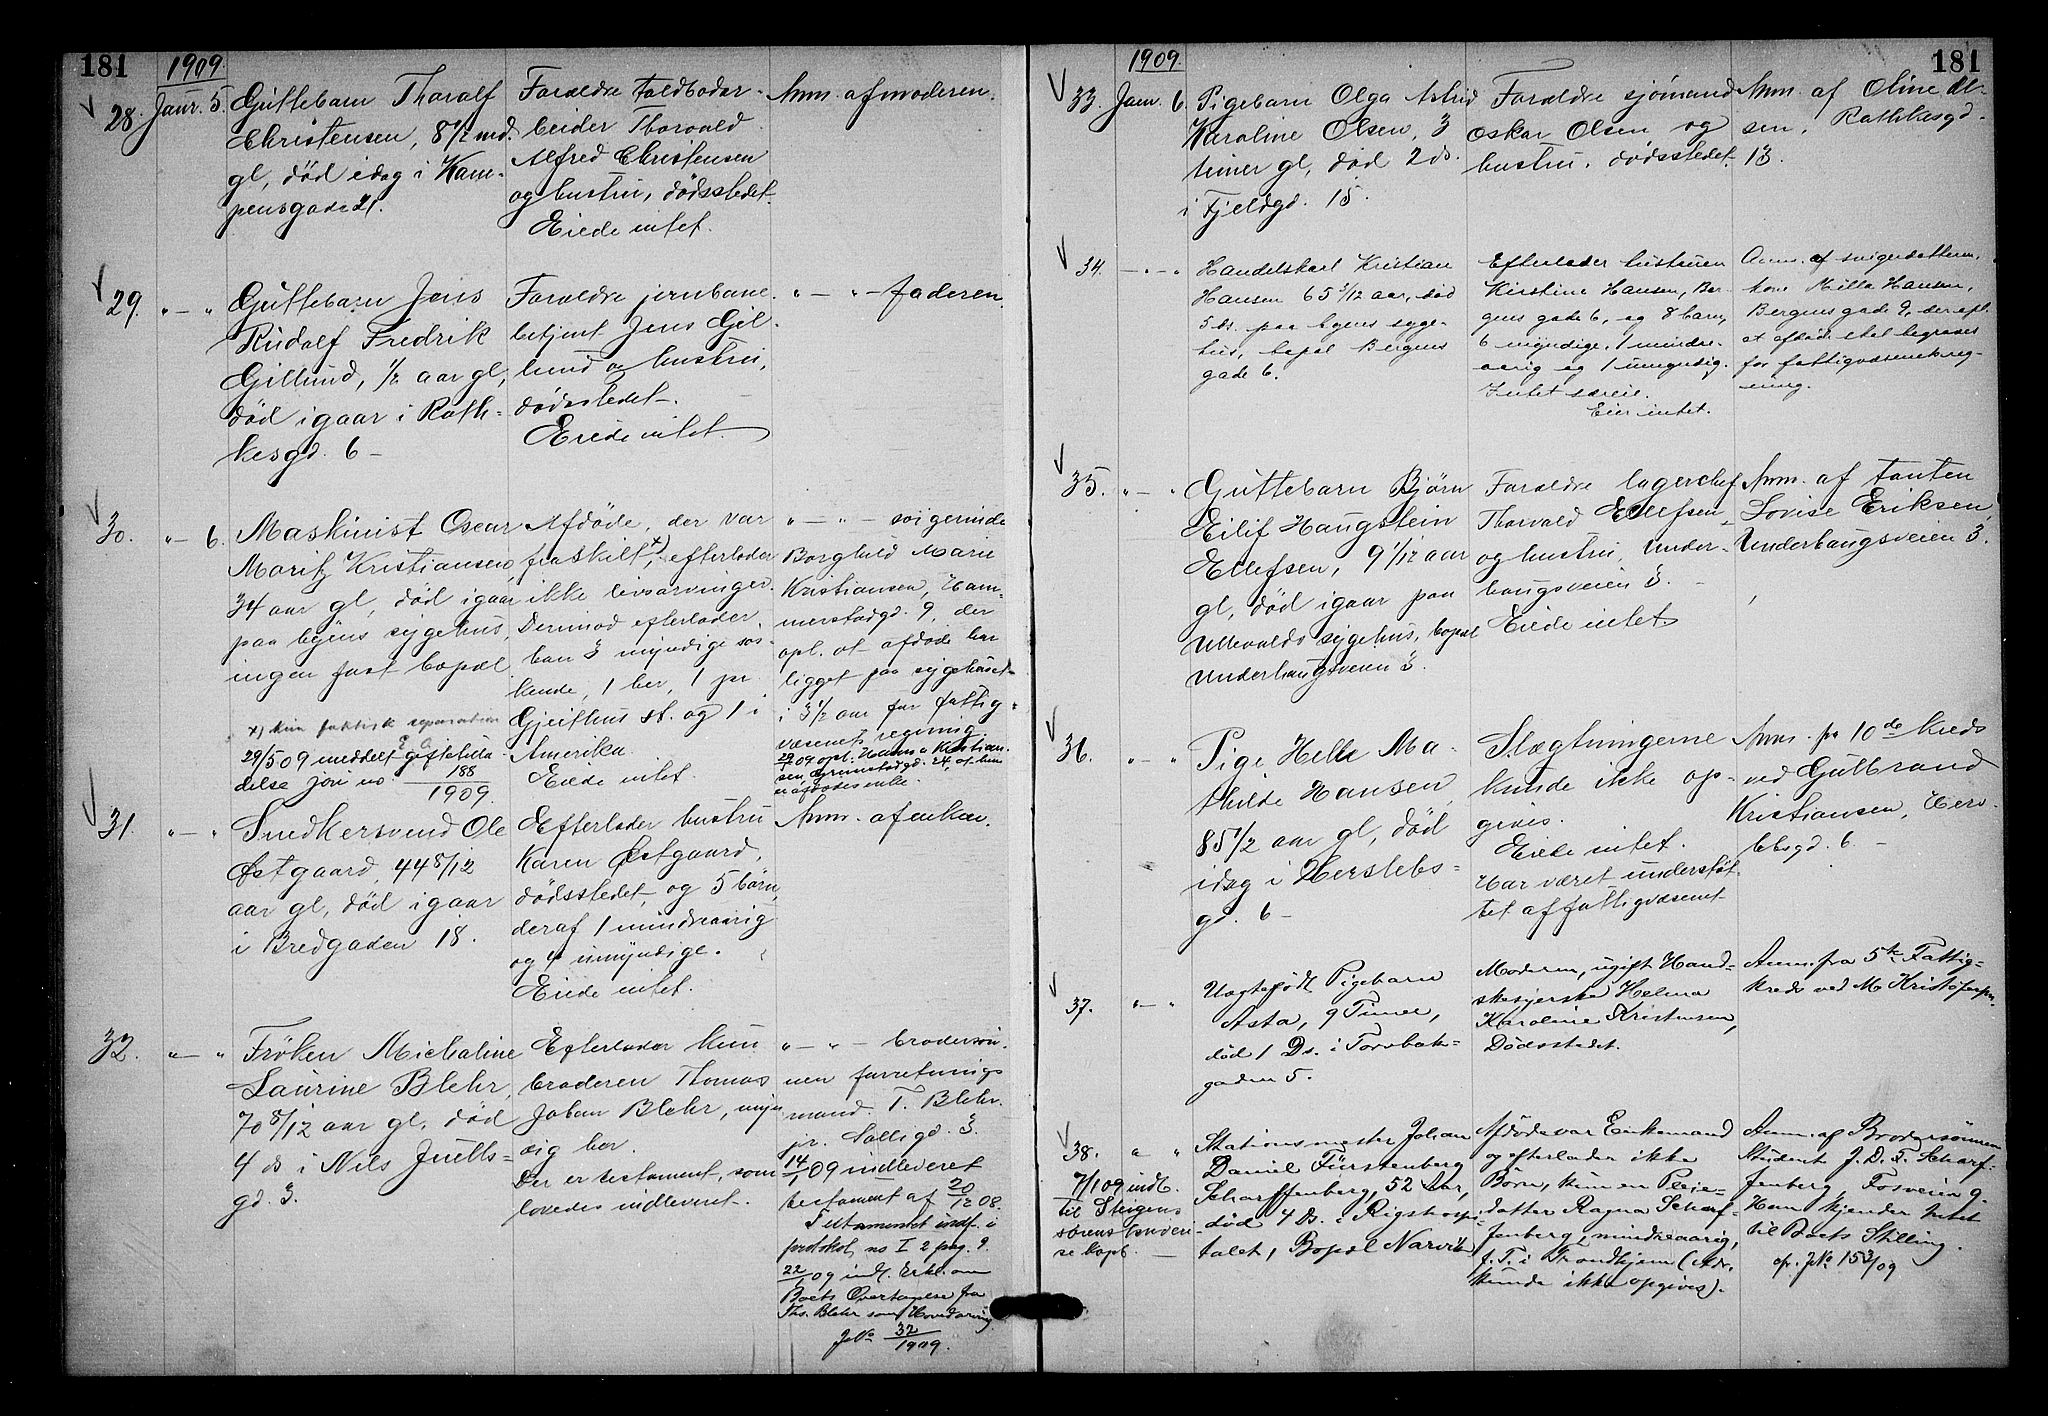 181
1909.
28. Janr. 5. Guttebarn Tharalf
Christensen, 8 1/2 md.
gl, död idag i Kam-
pensgade 21.
Forældre Toldbodar-
beider Thorvald
Alfred Christensen
og hustru, dödsstedet.
Eiede intet.
Anm. af moderen.
29. " — " Guttebarn Jens
Rudolf Fredrik
Gillund, 1/2 aar gl,
död igaar i Rath-
kesgd. 6 —
Forældre jernbane-
betjent Jens Gil-
lund og hustru,
dödsstedet.
Eiede intet.
" — " — faderen.
30. " — 6. Maskinist Oscar
Moritz Kristiansen,
34 aar gl, död igaar
paa byens sygehus,
ingen fast bopæl
x) kun faktisk separation
29/5 09 meddelt giftetilla-
delse jour no. 188/1909.
Afdöde, der var
fraskilt x), efterlader
ikke livsarvinger.
Derimod efterlader
han 3 myndige søs-
kende, 1 her, 1 pr.
Gjeithus st. og 1 i
Amerika.
Eiede intet.
" — " — svigerinde
Borghild Marie
Kristiansen, Ham-
merstadgd. 9, der
opl. at afdöde har
ligget paa sygehuset
i 3 1/2 aar for fattig-
væsenets regning.
09 opl. Hanna Kristian-
sen, Grimstadgd. 24, at hun
er afdödes enke.
31. " — " Snedkersvend Ole
Østgaard, 44 8/12
aar gl, död igaar
i Bredgaden 18.
Efterlader hustru
Karen Østgaard,
dödsstedet, og 5 börn,
deraf 1 mindreaarig
og 4 umyndige.
Eiede intet.
Anm. af enken.
32. " — " Fröken Michaline
Laurine Blehr,
70 8/12 aar gl, död
4 ds i Nils Juells-
gd. 3.
Efterlader kun
broderen Thomas
Johan Blehr, myn-
dig her.
Der er testament, som
lovedes indleveret.
" — " — brodersön-
nen forretnings
mand T. Blehr
jr. Solligd. 3.
14/1 09 indleveret
testament af 20/12 08.
Testamentet indf. i
protokol no I 2 pag. 9.
22/1 09 indl. Erkl. om
Boets Overtagelse fra
Ths. Blehr som Hovedarving
J.No 32/1909.
181
1909.
33. Janr. 6. Pigebarn Olga Astrid
Karoline Olsen, 3
timer gl, död 2 ds.
i Fjeldgd. 15.
Forældre sjömand
Oskar Olsen og
hustru, dödsstedet.
Anm. af Oline Ol-
sen, Rathkesgd.
13.
34. — " — " Handelskarl Kristian
Hansen 65 3/12 aar, död
5 ds. paa byens syge-
hus, bopæl Bergens
gade 6.
Efterlader hustruen
Kirstine Hansen, Ber-
gens gade 6, og 8 barn,
6 myndige, 1 mindre-
aarig og 1 umyndig.
Intet særeie.
Eier intet.
Anm. af svigerdatteren,
kone Milla Hansen,
Bergensgade 9, der opl.
at afdöde skal begraves
for fattigvæsenets reg-
ning.
35. " — " Guttebarn Björn
Eilif Haugstein
Ellefsen, 9 1/12 aar
gl, död igaar paa
Ullevaals sygehus, bopæl
Underhaugsveien 3.
Forældre lagerchef
Thorvald Ellefsen
og hustru, Under-
haugsveien 3.
Eiede intet
Anm. af tanten
Lovise Eriksen,
Underhaugsveien 3.
36. " — " Pige Helle Ma-
thilde Hansen,
85 1/2 aar gl, död
idag i Herslebs-
gd. 6 —
Slægtningerne
kunde ikke op-
gives.
Eiede intet.
Har været understöt-
tet af fattigvæsenet
Anm. fra 10de kreds
ved Gulbrand
Kristiansen, Hers-
lebsgd. 6. —
37. " — " Uægtefödt Pigebarn
Asta, 9 Timer,
död 1 Ds. i Torvbak-
gaden 5.
Moderen, ugift Hand-
skesyerske Helma
Karoline Kristensen,
Dödsstedet.
Anm. fra 5te Fattig-
kreds ved M Kristofersen.
38. " " Stationsmester Johan
Daniel Fürstenberg
Scharffenberg, 52 Aar,
död 4 Ds. i Rigshospi-
talet, Bopæl Narvik
7/1 09 indb.
til Steigens
sorenskriveri-
se Kopb.
Afdöde var Enkemand
og efterlader ikke
Börn, kun en Pleie-
datter Ragna Scharf-
fenberg, mindreaarig,
f. T. i Trondhjem (Adr.
kunde ikke opgives).
Anm. af Brodersönnen
Student J. D. F. Scharf-
fenberg, Fosveien 9.
Han kjender intet
til Boets Stilling.
cfr. J.No. 153/09